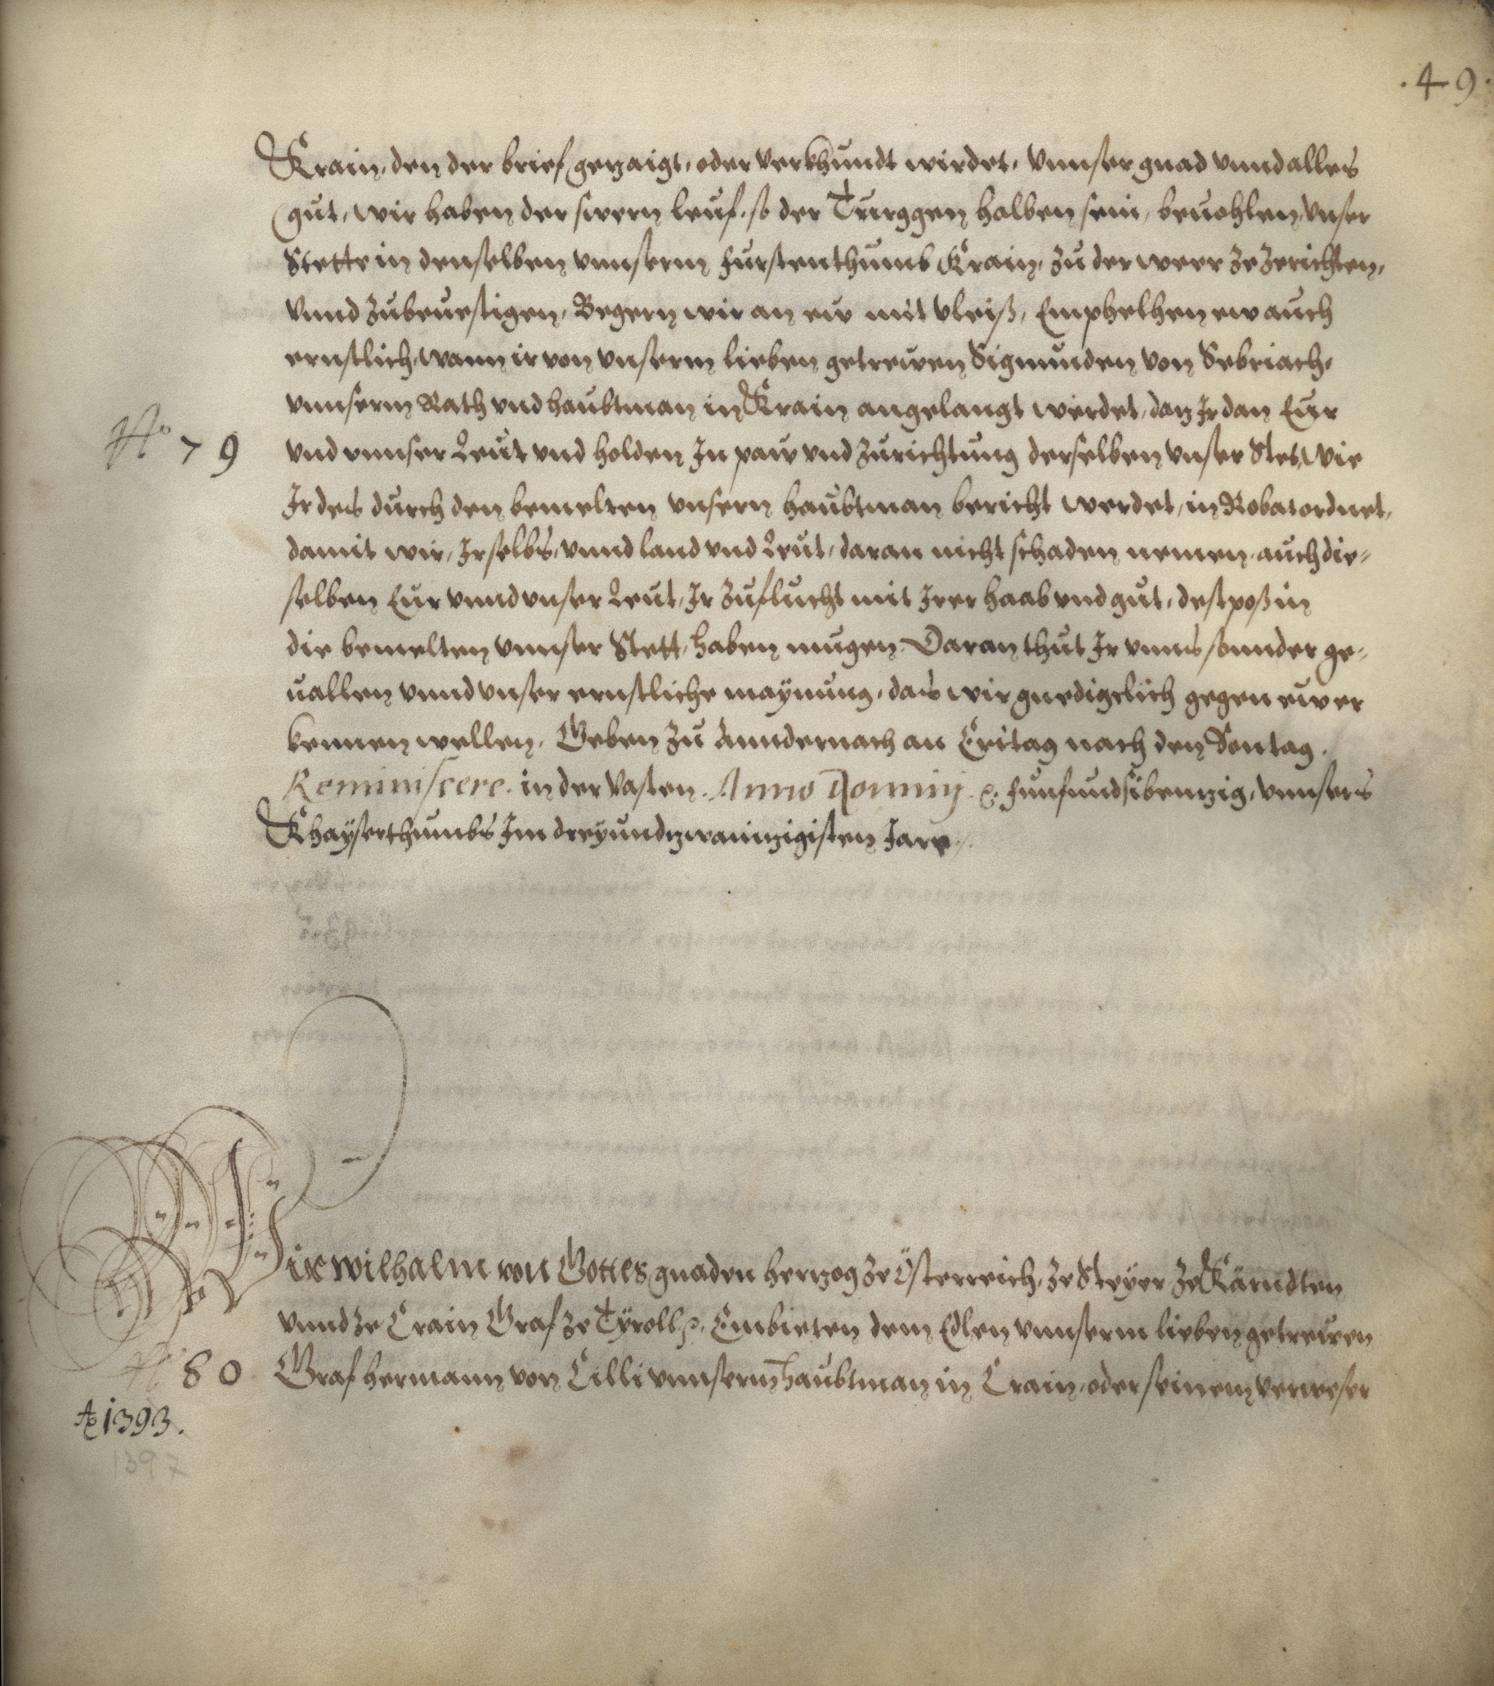 .49.
Krain, den der brief gezaigt, oder verkhundt wirdet, vnnser gnad vnnd alles
gut, wir haben der swern leuf, so der Turggen halben sein, beuohlen, vnser
Stett in denselben vnnserm Furstenthumb Krain, zu der weer ze zerichten,
vnnd zubeuestigen, Begern wir an ew mit vleiß, Emphelhen ew auch
ernstlich, wann ir von vnserm lieben getrewen Sigmunden von Sebriach,
vnnserm Rath vnd haubtman in Krain angelangt werdet, daz Ir dan Eur
No 79
vnd vnnser Leut vnd holden In paw vnd zurichtung derselben vnser Stet, wie
Ir des durch den bemelten vnsern haubtman bericht werdet, in Robat ordnet,
damit wir, Ir selbs, vnnd land vnd Leut, daran nicht schaden nemen, auch die-
selben Eur vnnd vnser Leut, Ir zuflucht mit Irer haab vnd gut, destpaß in
die bemelten vnnser Stett, haben mugen. Daran thut Ir vnns sonnder ge-
uallen vnnd vnser ernstliche maynung, das wir gnedigclich gegen ew er
kennen wellen. Geben zu Anndernach an Eritag nach den Sontag
Reminiscere. in der Vasten. Anno Dominij. &. funfundsibenzig, vnnsers
Khayserthumbs Im dreyundzwainzigisten Jare.
Wir Wilhalm von Gottes gnaden herzog ze Österreich, ze Steyer ze Kärndten
vnnd ze Crain Graf ze Tyroll &. Embieten dem Edlen vnnserm lieben getrewen
No 80
Graf hermann von Cilli vnnserm haubtman in Crain, oder seinem verweser
Ao 1393.
1397